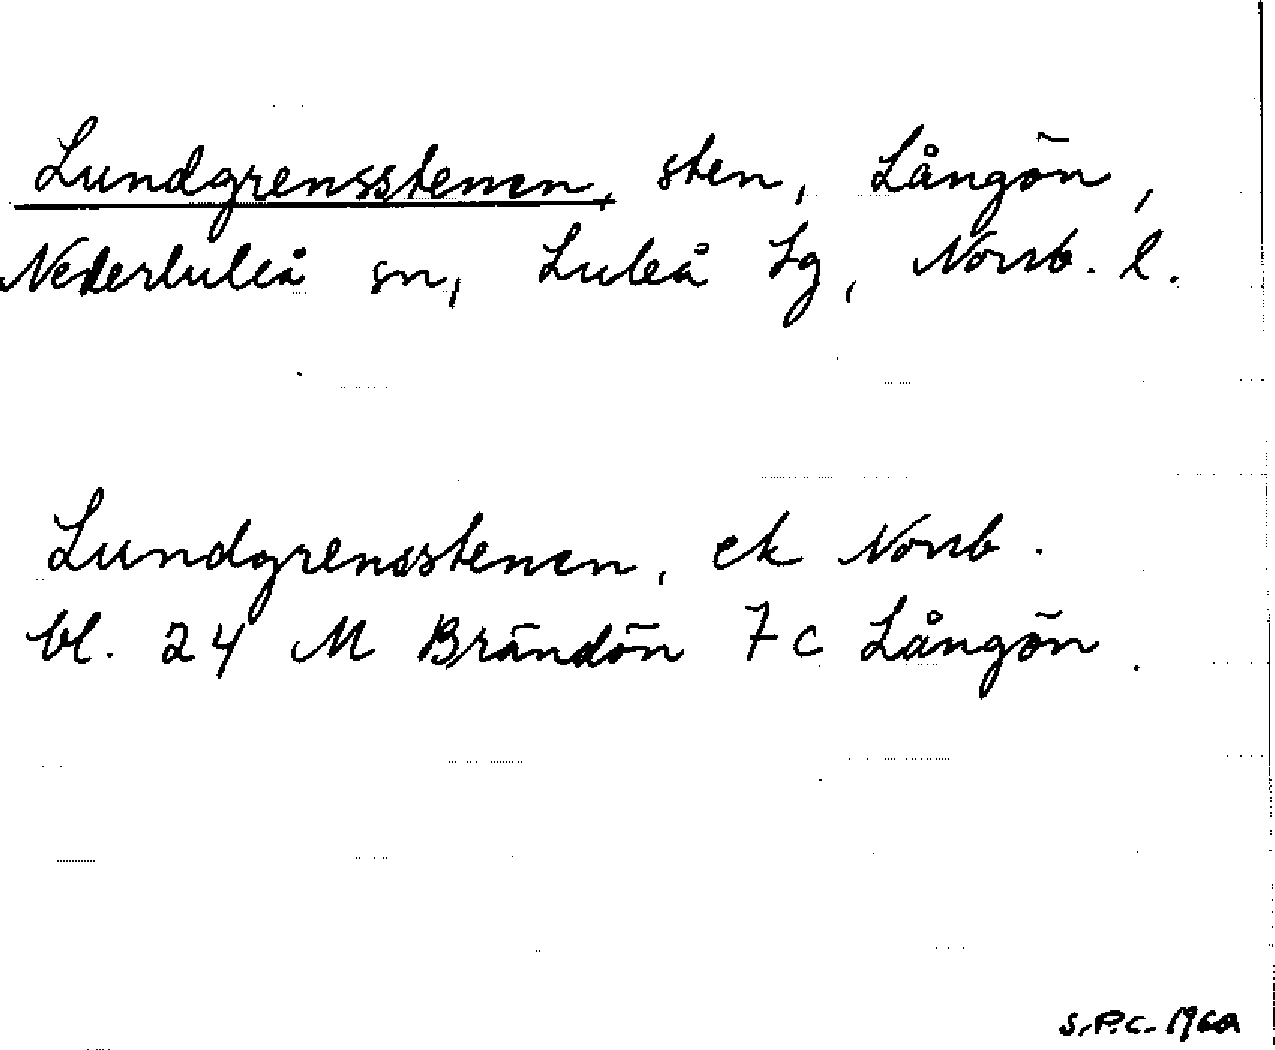 Lundgrensstenen, sten, Långön,
Nederluleå sn, Luleå lg, Norrb. l.
Lundgrensstenen, ek Norrb.
bl. 24 M Brändön 7c Långön.
S.P.C. 1960